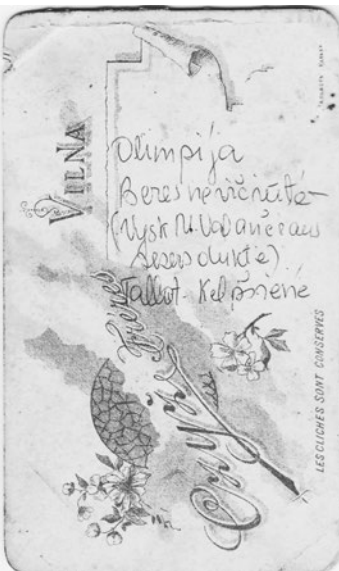 VILNA
Olimpija
Beresnevičiutė
(Vysk M. Valančiaus
Sesers duktė)
Tallot-Kelpšienė
Frères
LES CLICHES SONT CONSERVÉS